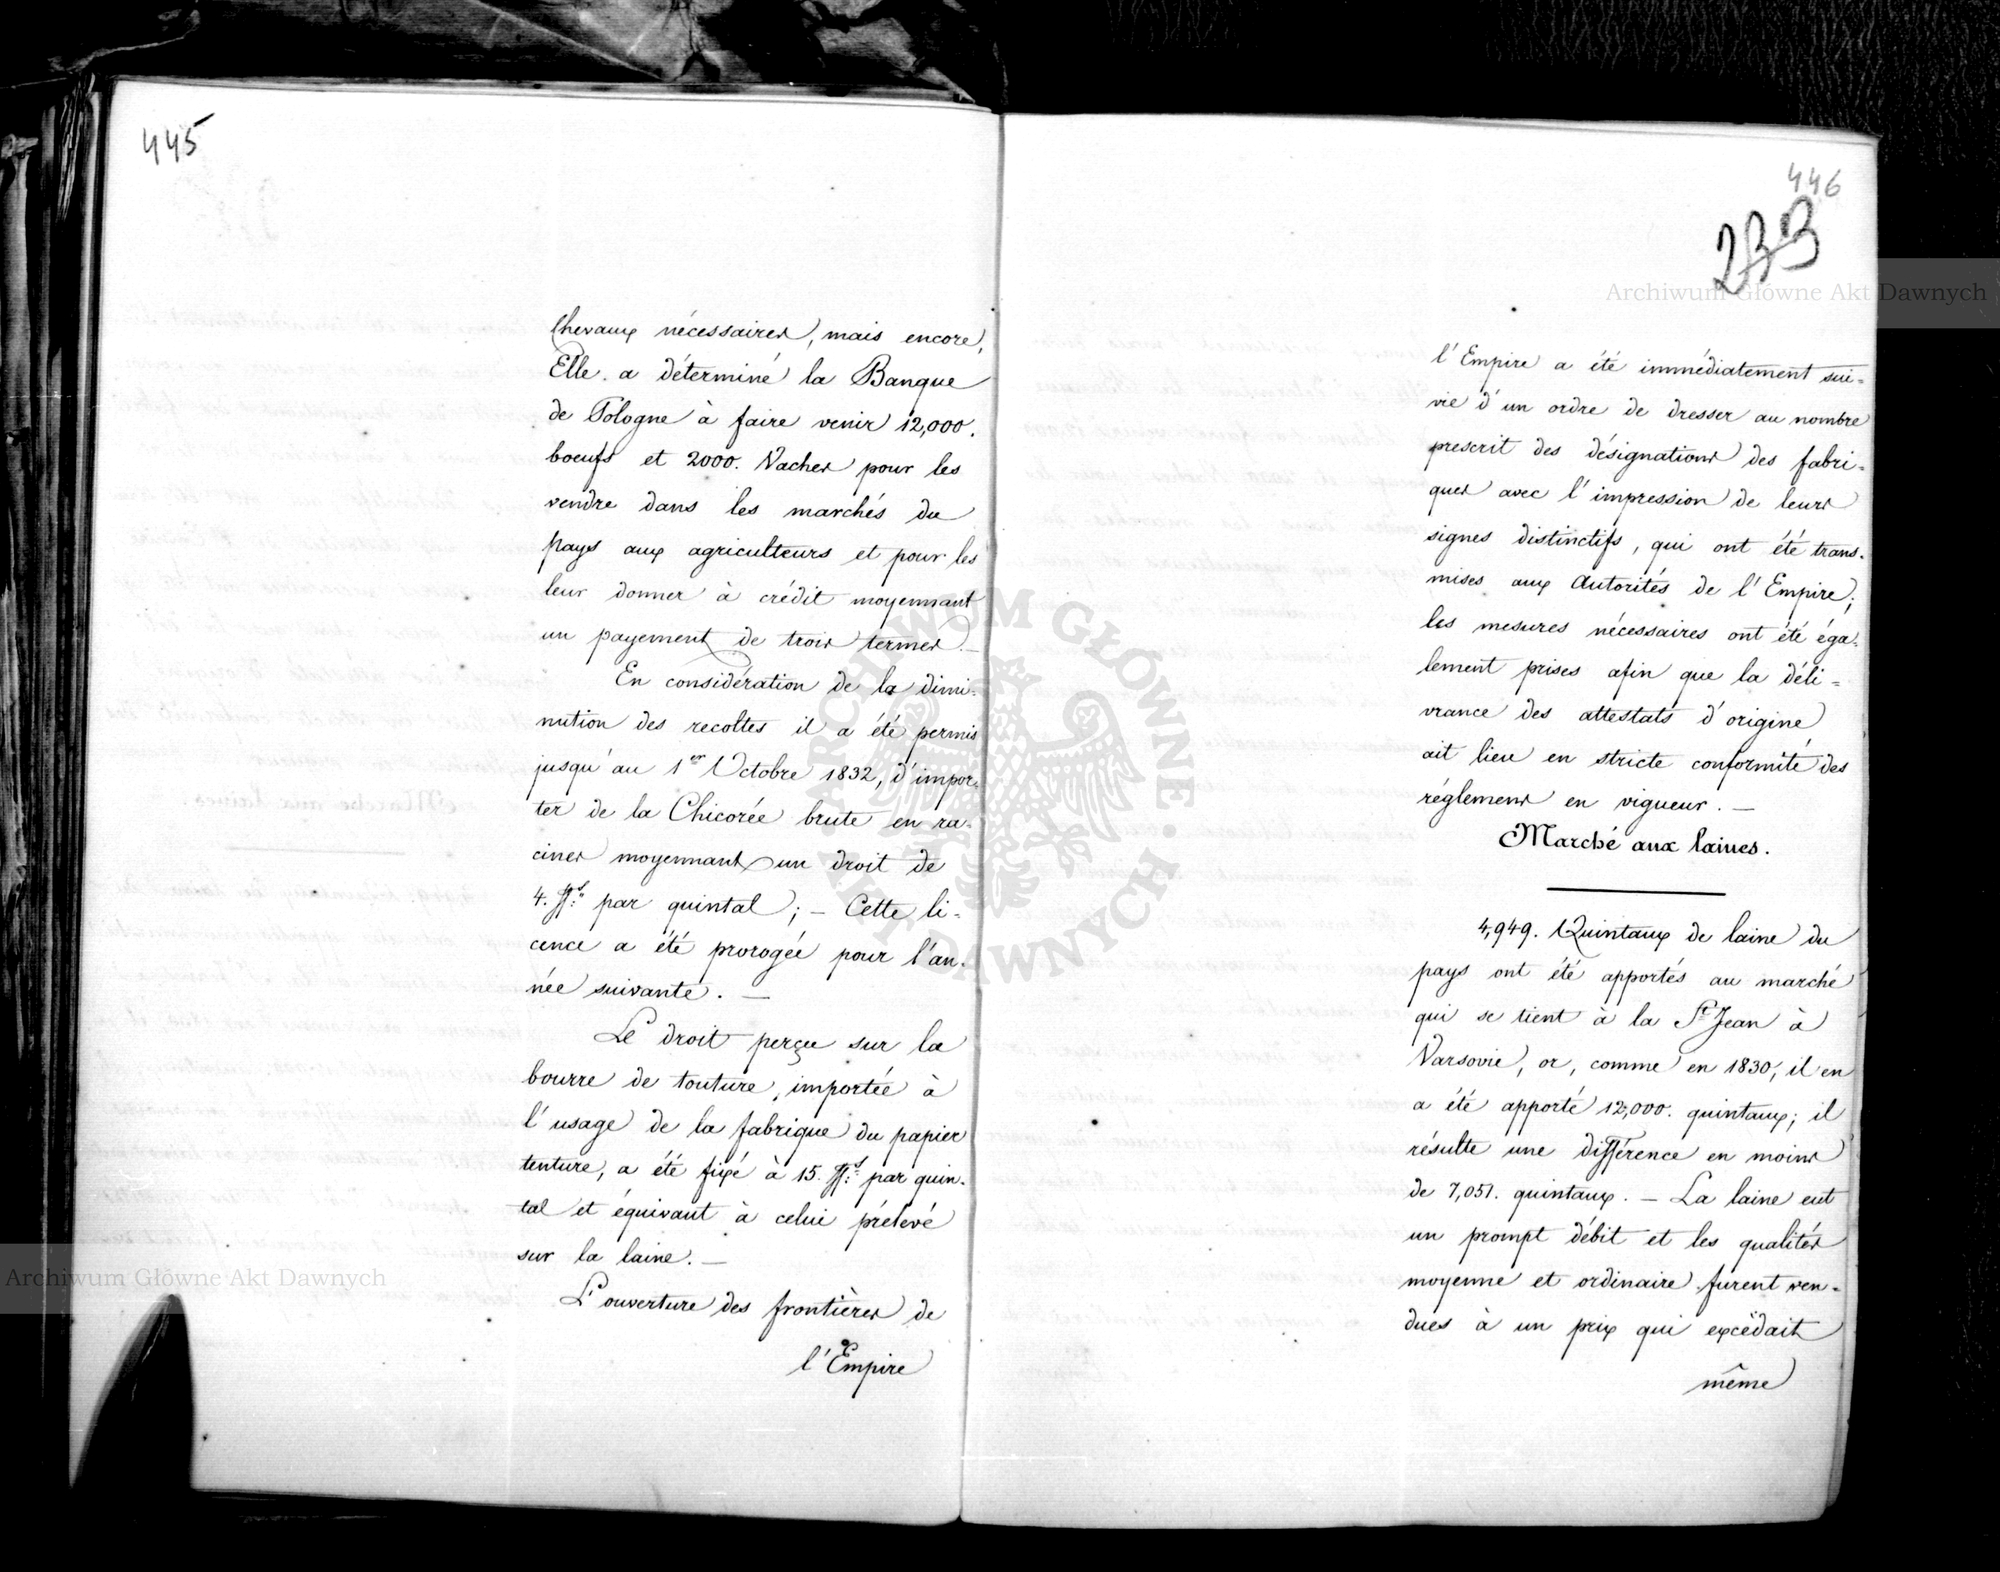 445
Chevaux nécessaires, mais encore,
Elle a déterminé la Banque
de Pologne à faire venir 12,000.
boeufs et 2000. Vaches pour les
vendre dans les marchés du
pays aux agriculteurs et pour les
leur donner à crédit moyennant
un payement de trois termes. —
En considération de la dimi-
nution des recoltes il a été permis
jusqu'au 1er Octobre 1832, d'impor-
ter de la Chicorée brute en ra-
cines moyennant un droit de
4. par quintal; — Cette li-
cence a été prorogée pour l'an-
née suivante. —
Le droit perçu sur la
bourre de touture, importée à
l'usage de la fabrique du papier
tenture, a été fixé à 15. par quin-
tal et équivant à celui prélevé
sur la laine. —
L'ouverture des frontières de
l'Empire
446
233
l'Empire a été immédiatement sui=
vie d'un ordre de dresser au nombre
prescrit des désignations des fabri=
ques avec l'impression de leurs
signes distinctifs, qui ont été trans-
mises aux Autorités de l'Empire;
les mesures nécessaires ont été éga-
lement prises afin que la déli=
vrance des attestats d'origine
ait lieu en stricte conformité des
réglemens en vigueur. —
Marché aux laines.
4,949. Quintaux de laine du
pays ont été apportés au marché
qui se tient à la St Jean à
Varsovie, or, comme en 1830, il en
a été apporté 12,000. quintaux; il
résulte une différence en moins
de 7,051. quintaux. — La laine eut
un prompt débit et les qualités
moyenne et ordinaire furent ven-
dues à un prix qui excédait
même
Archiwum Główne Akt Dawnych
Archiwum Główne Akt Dawnych
ARCHIWUM GŁÓWNE AKT DAWNYCH